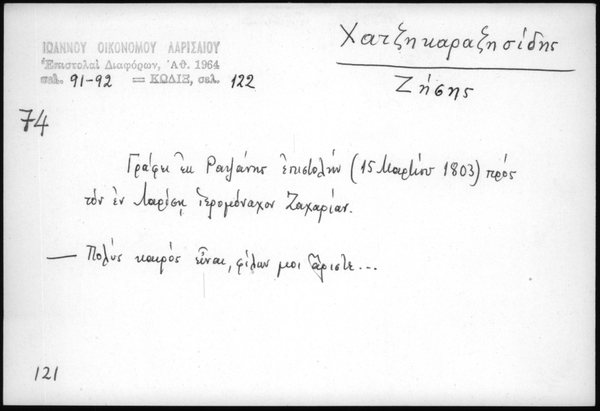 ΙΩΑΝΝΟΥ ΟΙΚΟΝΟΜΟΥ ΛΑΡΙΣΑΙΟΥ
Ἐπιστολαὶ Διαφόρων, Ἀθ. 1964
σελ. 91-92 — ΚΩΔΙΞ, σελ. 122
Χατζηκαραζησίδης
Ζήσης
74
Γράφει ἐκ Ραψάνης ἐπιστολήν (15 Μαρτίου 1803) πρός
τόν ἐν Λαρίσῃ ἱερομόναχον Ζαχαρίαν.
— Πολύς καιρός εἶναι, φίλων μοι ἄριστε...
121